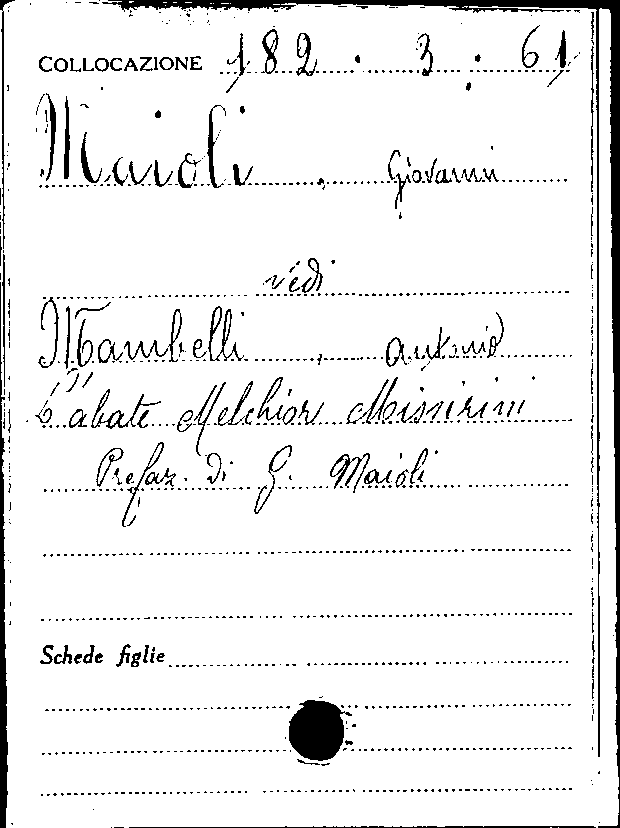 COLLOCAZIONE 182 . 3 . 61
Maioli , Giovanni
vedi
Mambelli , Antonio
L'abate Melchior Missirini
Prefaz. di G. Maioli
Schede figlie